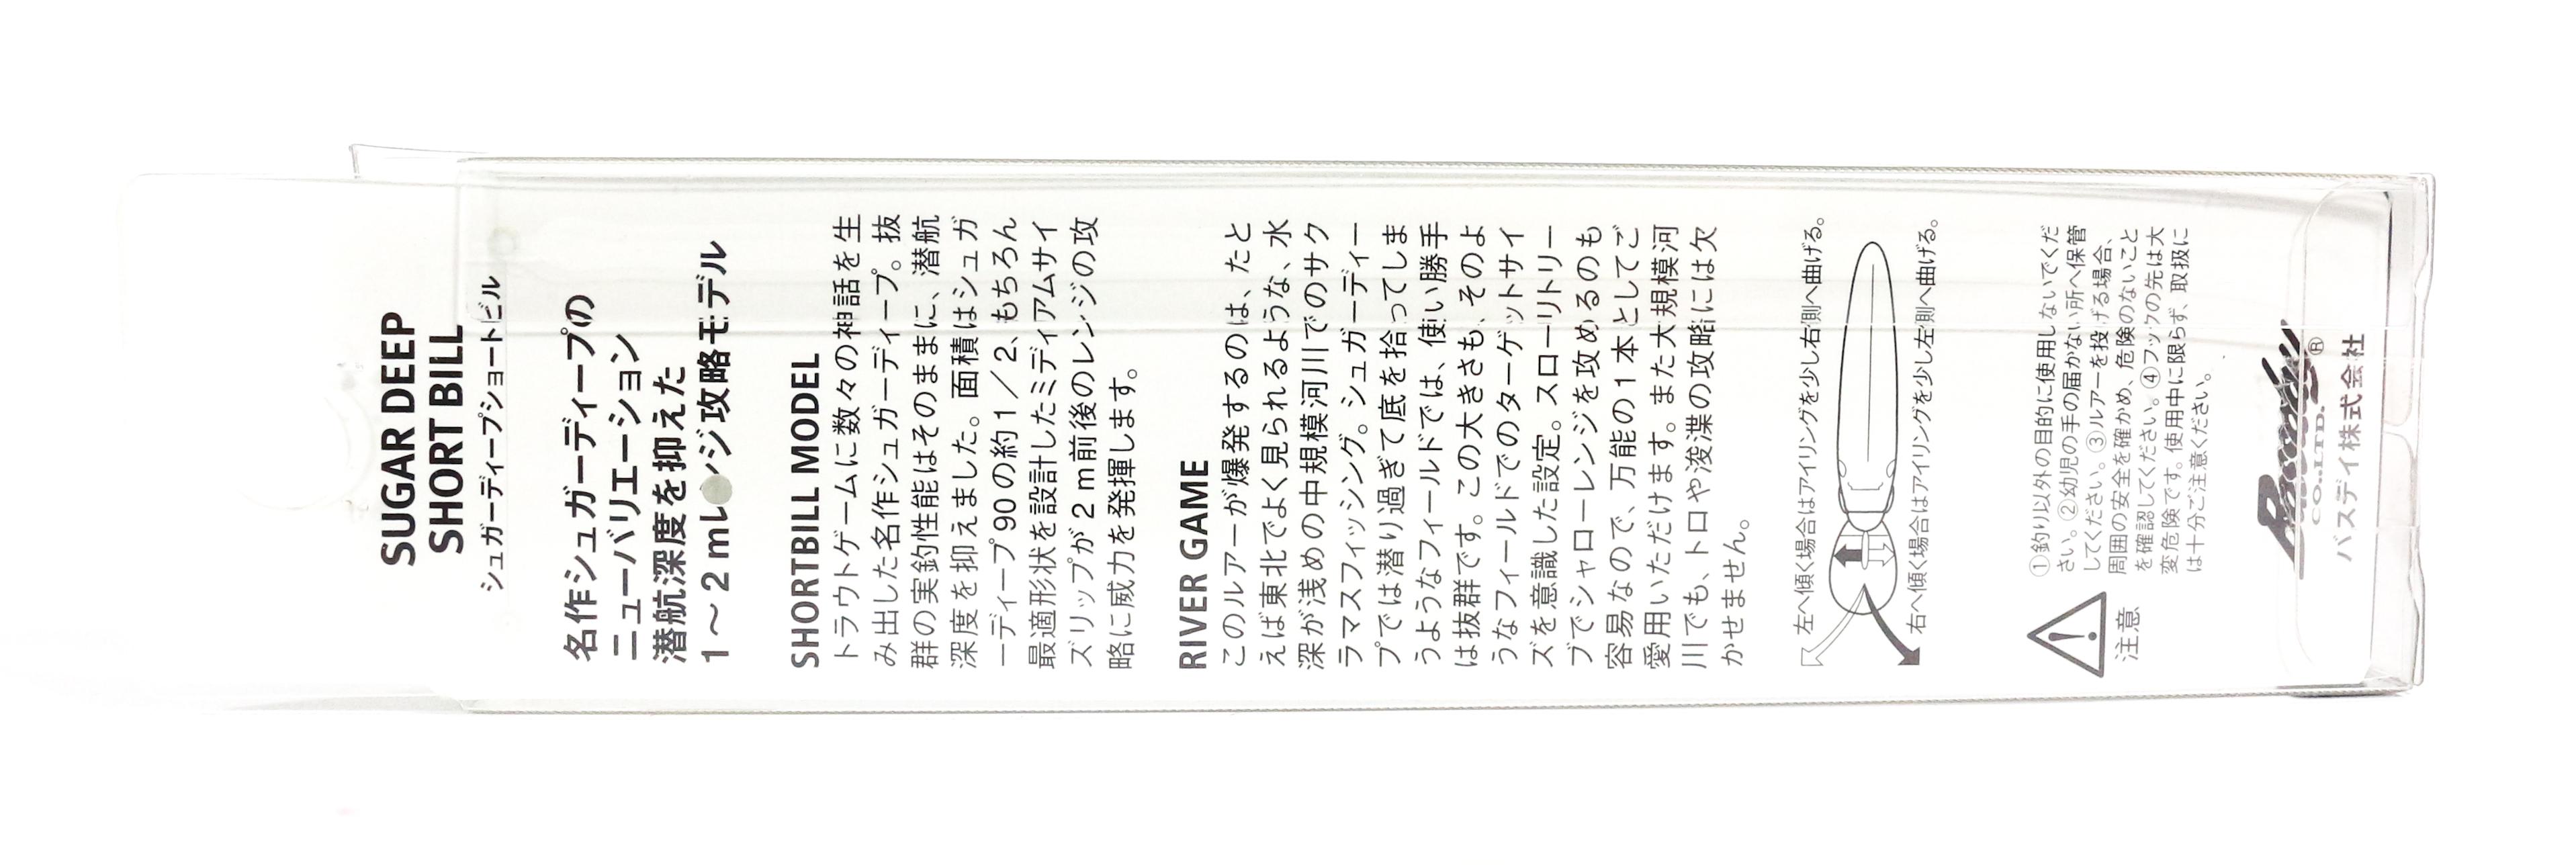 SUGAR DEEP
SHORT BILL
シュガーディープショートビル
名作シュガーディープの
ニューバリエーション
潜航深度を抑えた
1〜2mレンジ攻略モデル
SHORTBILL MODEL
トラウトゲームに数々の神話を生
み出した名作シュガーディープ。抜
群の実釣性能はそのままに、潜航
深度を抑えました。面積はシュガ
ーディープ90の約1／2、もちろん
最適形状を設計したミディアムサイ
ズリップが2m前後のレンジの攻
略に威力を発揮します。
RIVER GAME
このルアーが爆発するのは、たと
えば東北でよく見られるような、水
深が浅めの中規模河川でのサク
ラマスフィッシング。シュガーディー
プでは潜り過ぎて底を拾ってしま
うようなフィールドでは、使い勝手
は抜群です。この大きさも、そのよ
うなフィールドでのターゲットサイ
ズを意識した設定。スローリトリー
ブでシャローレンジを攻めるのも
容易なので、万能の1本としてご
愛用いただけます。また大規模河
川でも、トロや淡渫の攻略には欠
かせません。
左へ傾く場合はアイリングを少し右側へ曲げる。
右へ傾く場合はアイリングを少し左側へ曲げる。
注意
①釣り以外の目的に使用しないでくだ
さい。②幼児の手の届かない所へ保管
してください。③ルアーを投げる場合、
周囲の安全を確かめ、危険のないこと
を確認してください。④フックの先は大
変危険です。使用中に限らず、取扱に
は十分ご注意ください。
Bassday®
CO.,LTD.
バスデイ株式会社